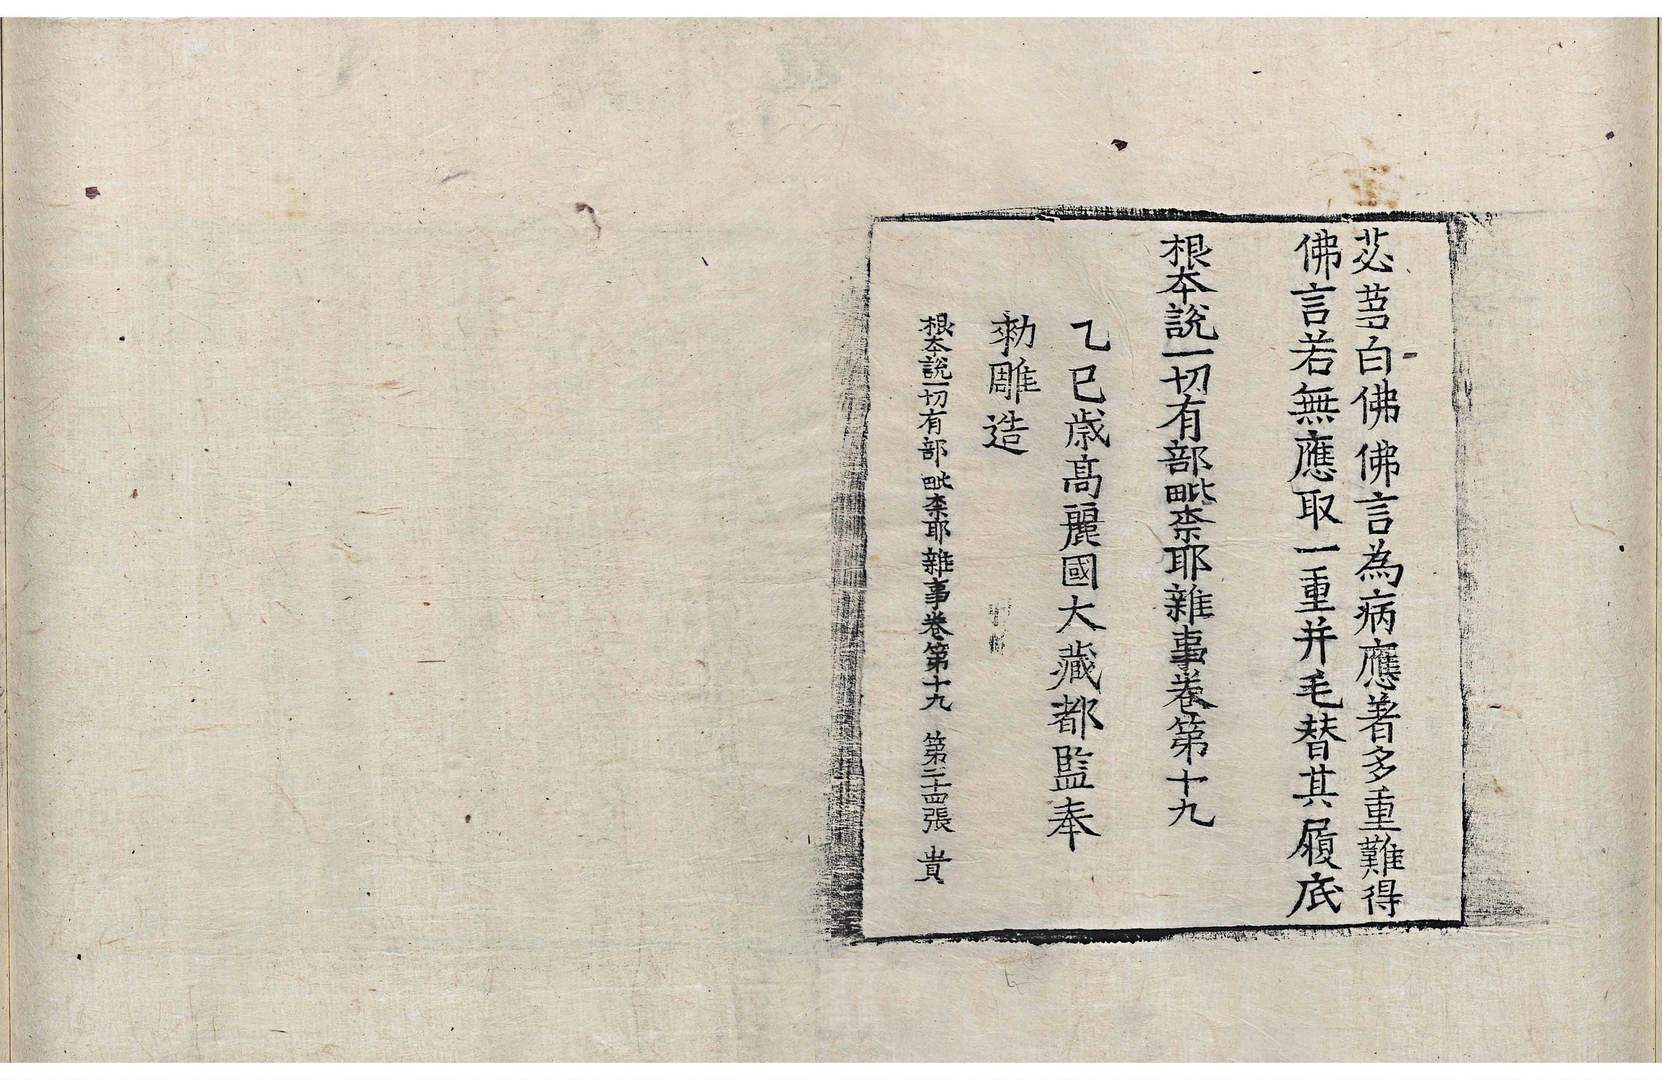 苾芻白佛佛言為病應著多重難得
佛言若無應取一重并毛替其履底
根本說一切有部毗柰耶雜事卷第十九
乙巳歲高麗國大藏都監奉
勑雕造
根本說一切有部毗柰耶雜事卷第十九 第二十四張 貴